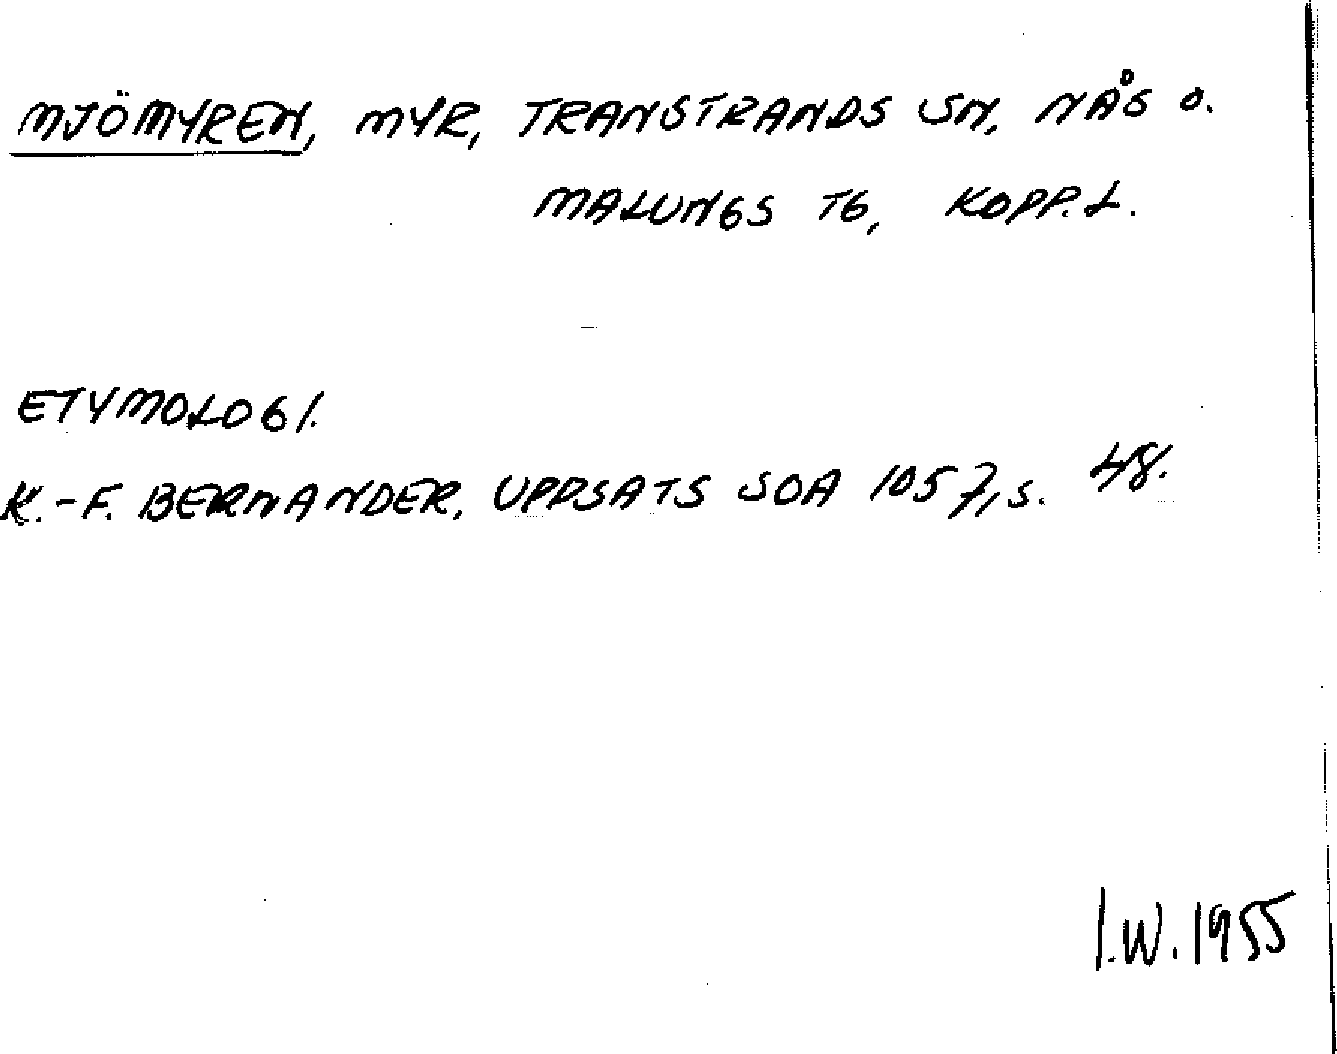 MJÖMYREN, MYR, TRANSTRANDS SN, NÅS O.
MALUNGS TG, KOPP. L.
ETYMOLOGI.
K.-F. BERNANDER, UPPSATS SOA 1057, S. 48.
I.W. 1955